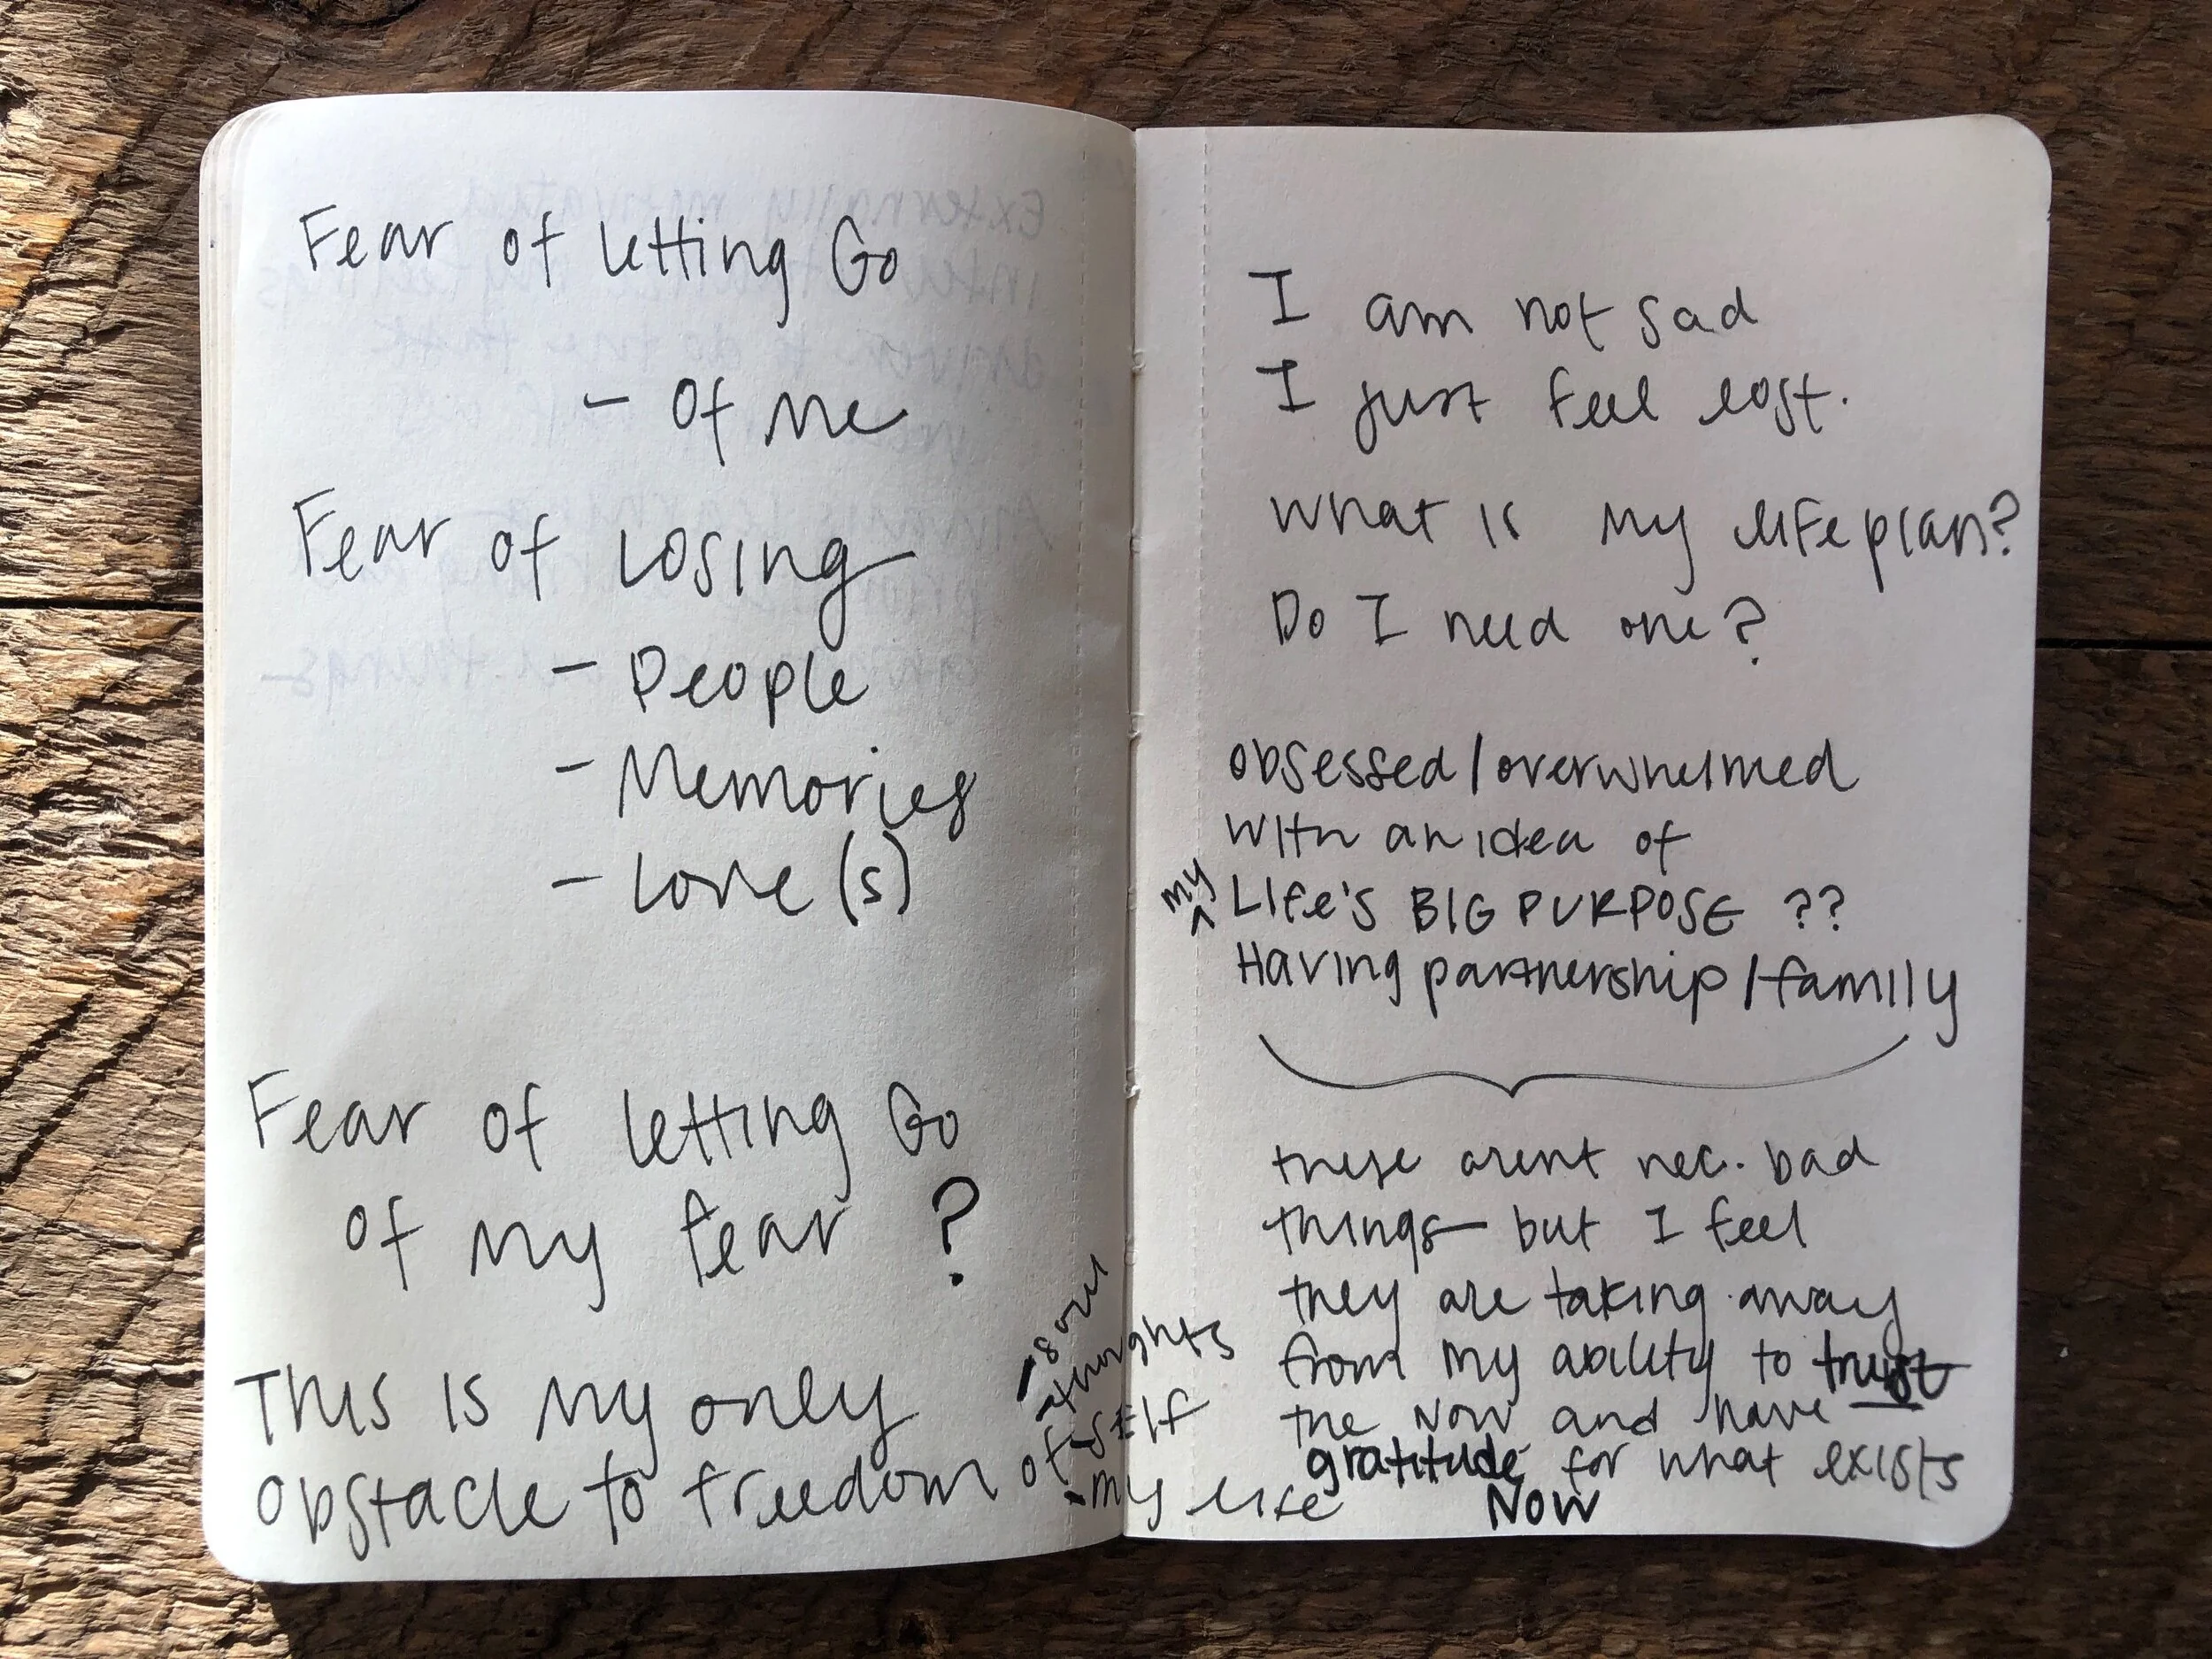 Fear of letting Go
- Of me
Fear of Losing
- People
- Memories
- Love(s)
Fear of letting Go
of my fear ?
This is my only
obstacle to freedom of
- soul
- thoughts
- SElf
- my life
I am not sad
I just feel lost.
What is my life plan?
Do I need one?
obsessed/overwhelmed
with an idea of
my
^ Life's BIG PURPOSE ??
Having partnership/family
these arent nec. bad
things - but I feel
they are taking away
from my ability to trust
the Now and have
gratitude for what exists
Now